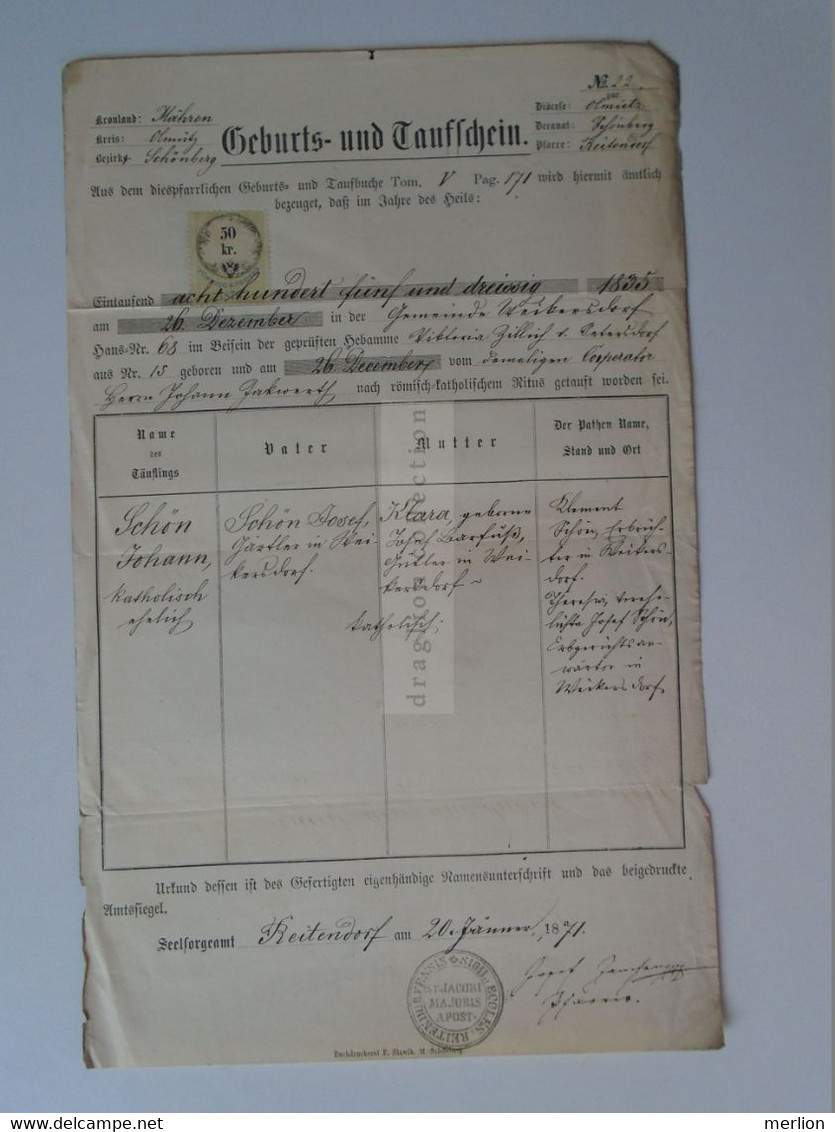 No. 22.
Kronland: Mähren
Kreis: Olmütz
Bezirk: Schönberg
Geburts- und Taufschein.
Diöcese: Olmütz
Decanat: Schönberg
Pfarre: Reitendorf
Aus dem diespfarrlichen Geburts- und Taufbuche Tom. V Pag. 171 wird hiermit ämtlich
bezeuget, daß im Jahre des Heils:
50
kr.
Eintausend acht hundert fünf und dreissig 1835
am 26. Dezember in der Gemeinde Weikersdorf
Haus-Nr. 68 im Beisein der geprüften Hebamme Viktoria Zillich v. Petersdorf
aus Nr. 15 geboren und am 26. December vom damaligen Cooperator
Herrn Johann nach römisch-katholischem Ritus getauft worden sei.
Name
des
Täuflings
Vater
Mutter
Der Pathen Name,
Stand und Ort
Schön
Johann,
katholisch
ehelich
Schön Josef,
Gärtler in Wei-
kersdorf.
Klara, geborne
Josef Barfuß,
in Wei-
kersdorf
katholisch.
Klement
Schön, Erbrich-
ter in Weikers-
dorf.
Theresia, verehe-
lichte Josef Schön,
Erbgerichtsan-
wärter in
Weikersdorf.
Urkund dessen ist des Gefertigten eigenhändige Namensunterschrift und das beigedruckte
Amtssiegel.
Seelsorgeamt Reitendorf am 20. Jänner 1871.
Josef
Pfarrer.
SIGIL. ECCLES. REITENDORFENSIS
ST. JACOBI
MAJORIS
APOST.
Buchdruckerei F. Slawik, M. Schönberg.
dragion collection
merlion